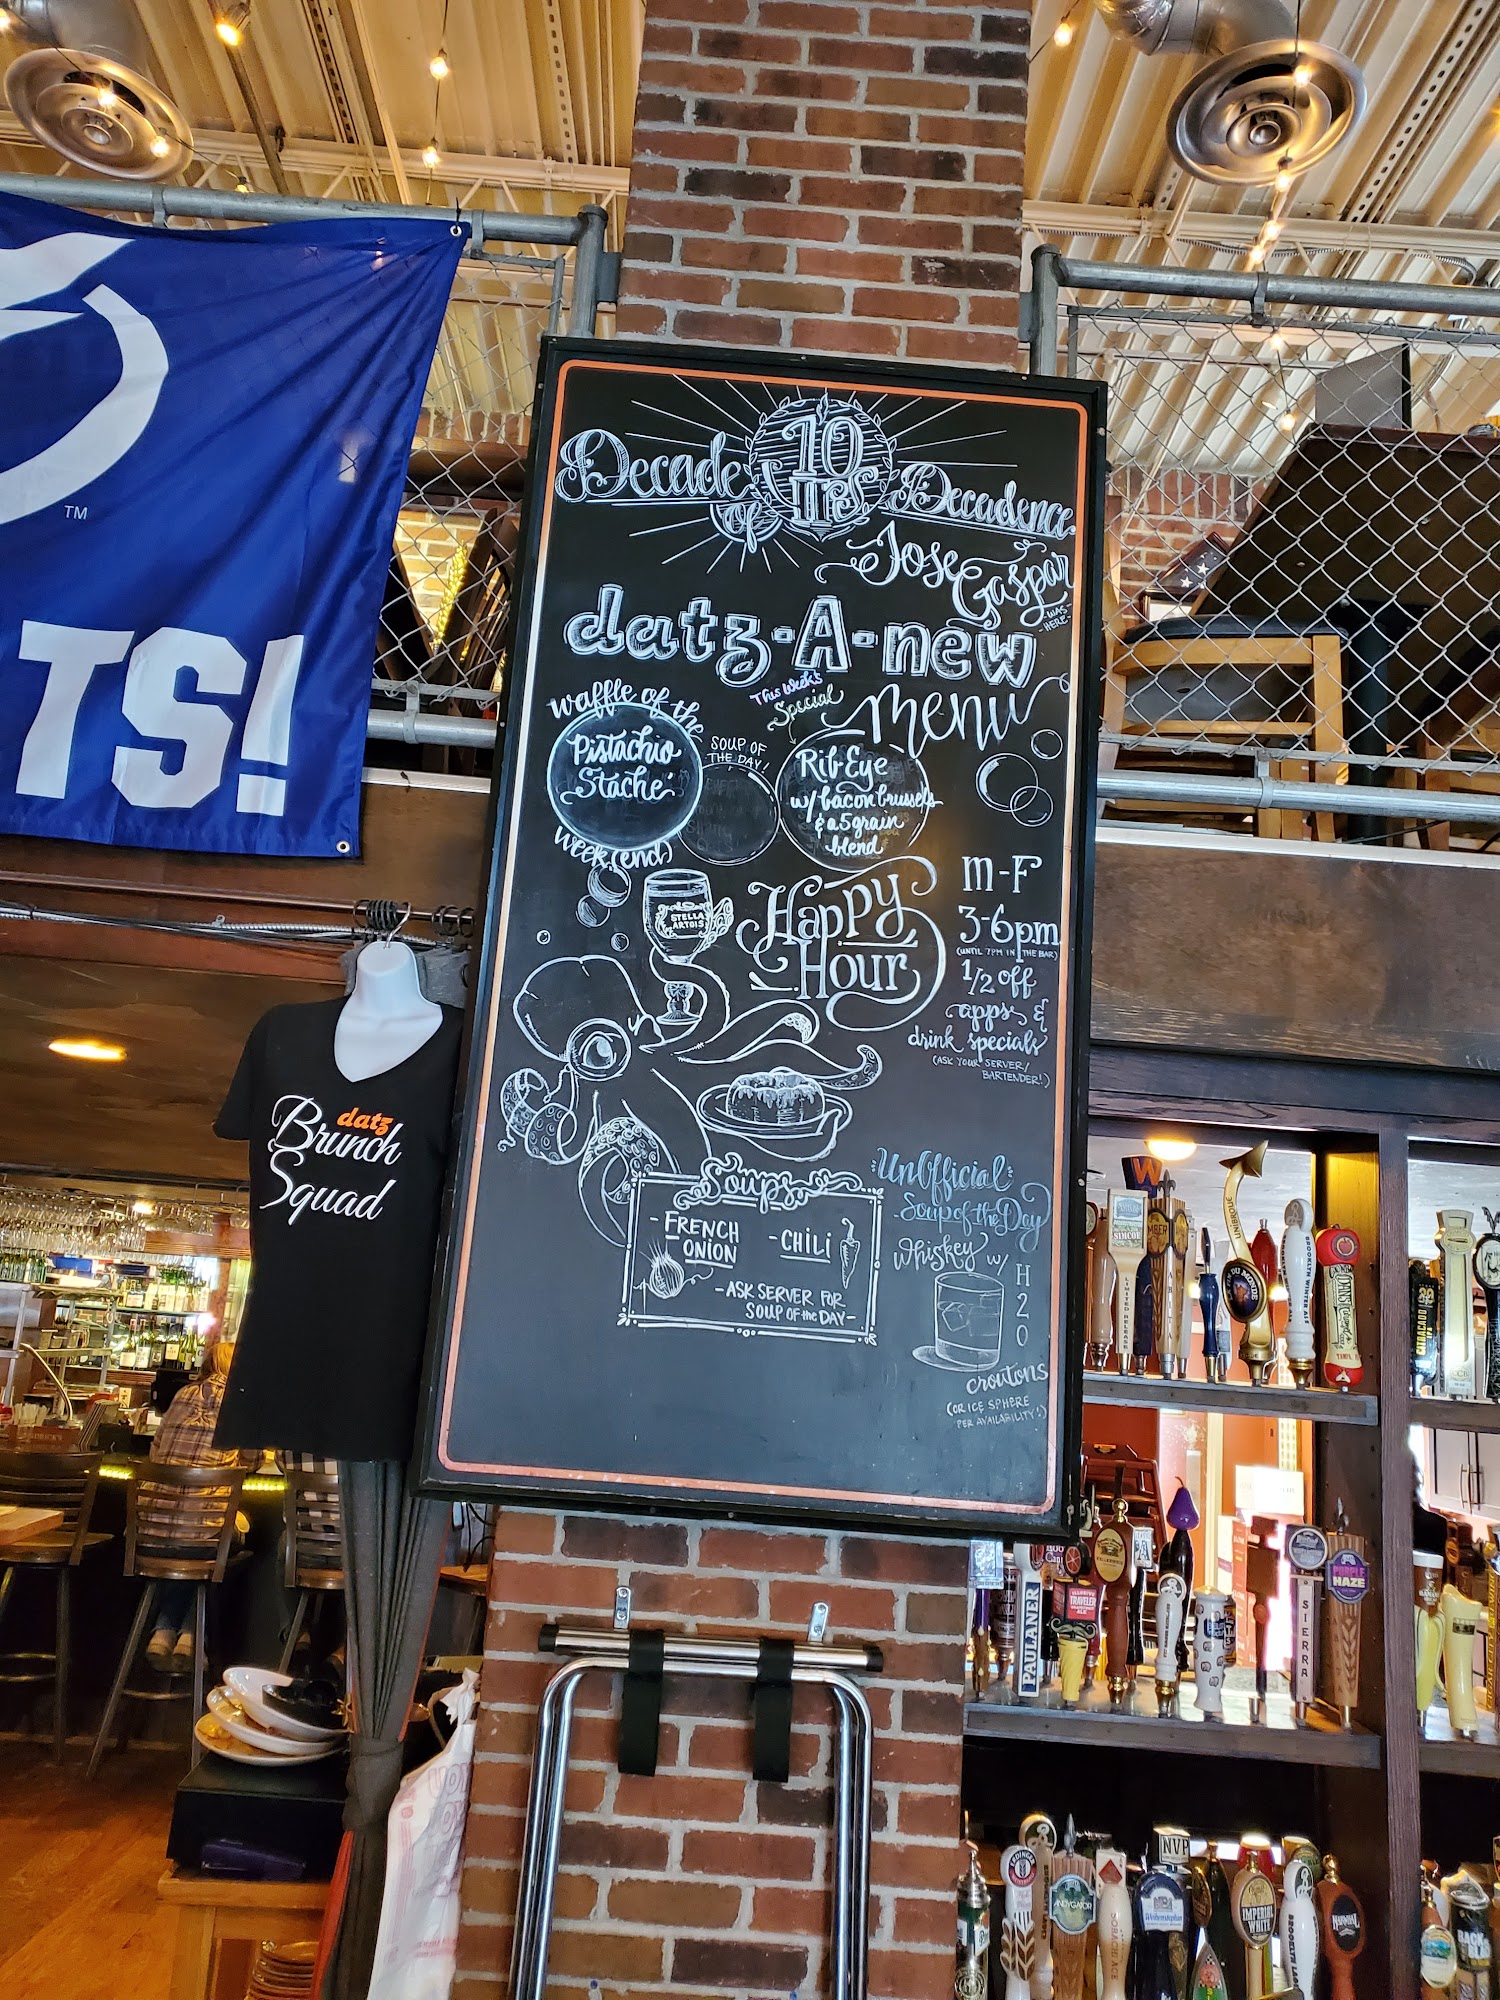 TM
TS!
datz
Brunch
Squad
Decade
of
10
yrs
Decadence
Jose
Gaspar
-WAS-
-HERE-
datz-A-new
menu
waffle of the
Pistachio
Stache'
week(end)
SOUP OF
THE DAY!
This Week's
Special
Rib Eye
w/ bacon brussels
& a 5 grain
blend
STELLA
ARTOIS
Happy
Hour
M-F
3-6pm
(UNTIL 7PM IN THE BAR)
1/2 off
apps &
drink specials
(ASK YOUR SERVER/
BARTENDER!)
Soups
-FRENCH
ONION
-CHILI
-ASK SERVER FOR
SOUP of the DAY-
"UnOfficial"
-Soup of the Day
Whiskey w/
H
2
0
croutons
(OR ICE SPHERE
PER AVAILABILITY!)
W
SIMCOE
LIMITED RELEASE
UNIBROUE
BROOKLYN WINTER ALE
PAULANER
TRAVELER
SIERRA
PURPLE
HAZE
NVP
IMPERIAL
WHITE
BROOKLYN
ANDYGATOR